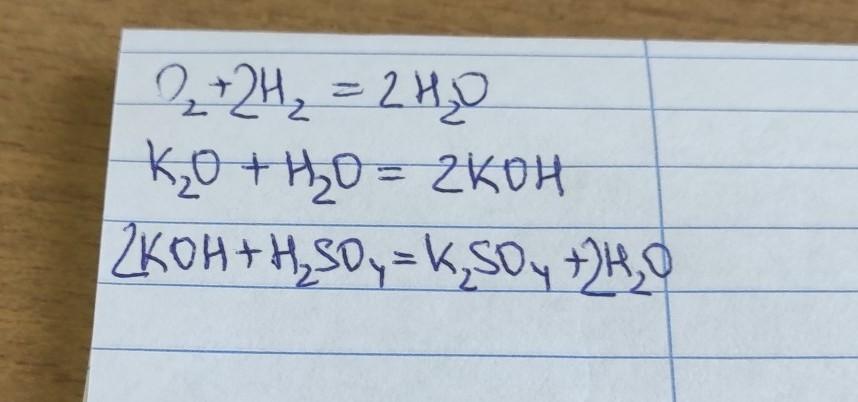 O₂+2H₂ = 2H₂O
K₂O + H₂O = 2KOH
2KOH+H₂SO₄=K₂SO₄+2H₂O